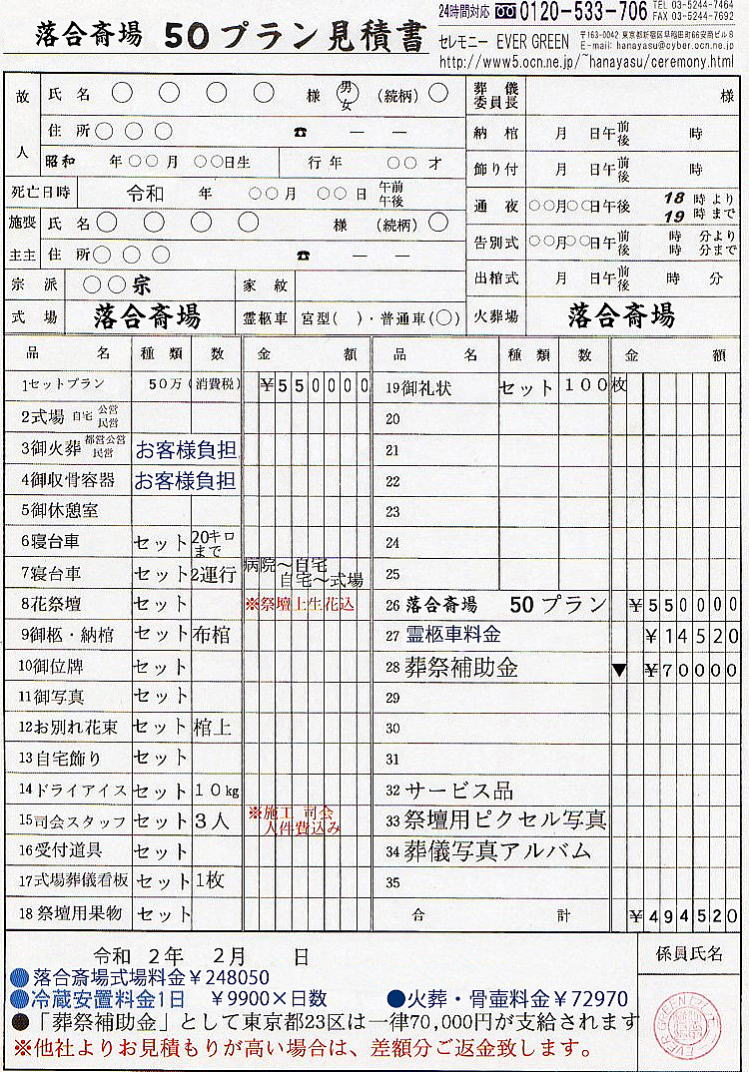 落合斎場 50プラン見積書
24時間対応 0120-533-706 TEL 03-5244-7464
FAX 03-5244-7692
セレモニー EVER GREEN 〒163-0042 東京都新宿区早稲田町66安商ビル8
E-mail: hanayasu@cyber.ocn.ne.jp
http://www5.ocn.ne.jp/~hanayasu/ceremony.html
故人 氏名 ○ ○ ○ ○ 様 男 女 (続柄) ○
住所 ○ ○ ○ ☎ ― ―
昭和 年○○月 ○○日生 行年 ○○才
死亡日時 令和 年 ○○月 ○○日 午前 午後
施主 喪主 氏名 ○ ○ ○ ○ 様 (続柄) ○
住所 ○ ○ ○ ☎ ― ―
宗派 ○○宗 家紋
式場 落合斎場 霊柩車 宮型( )・普通車(○)
葬儀委員長 様
納棺 月 日午前後 時
飾り付 月 日午前後 時
通夜 ○○月○○日午後 18時より 19時まで
告別式 ○○月○○日午前後 時 分より 時 分まで
出棺式 月 日午前後 時 分
火葬場 落合斎場
品名 種類 数 金額
1セットプラン 50万(消費税) ¥550000
2式場 自宅 公営 民営
3御火葬 都営公営 民営 お客様負担
4御収骨容器 お客様負担
5御休憩室
6寝台車 セット 20キロまで
7寝台車 セット 2運行 病院〜自宅 自宅〜式場
8花祭壇 セット ※祭壇上生花込
9御柩・納棺 セット 布棺
10御位牌 セット
11御写真 セット
12お別れ花束 セット 棺上
13自宅飾り セット
14ドライアイス セット 10kg
15司会スタッフ セット 3人 ※施工 司会 人件費込み
16受付道具 セット
17式場葬儀看板 セット 1枚
18祭壇用果物 セット
品名 種類 数 金額
19御礼状 セット 100枚
20
21
22
23
24
25
26 落合斎場 50プラン ¥550000
27 霊柩車料金 ¥14520
28 葬祭補助金 ▼ ¥70000
29
30
31
32 サービス品
33 祭壇用ピクセル写真
34 葬儀写真アルバム
35
合計 ¥494520
令和 2年 2月 日
係員氏名
●落合斎場式場料金¥248050
●冷蔵安置料金1日 ¥9900×日数 ●火葬・骨壷料金¥72970
●「葬祭補助金」として東京都23区は一律70,000円が支給されます
※他社よりお見積もりが高い場合は、差額分ご返金致します。